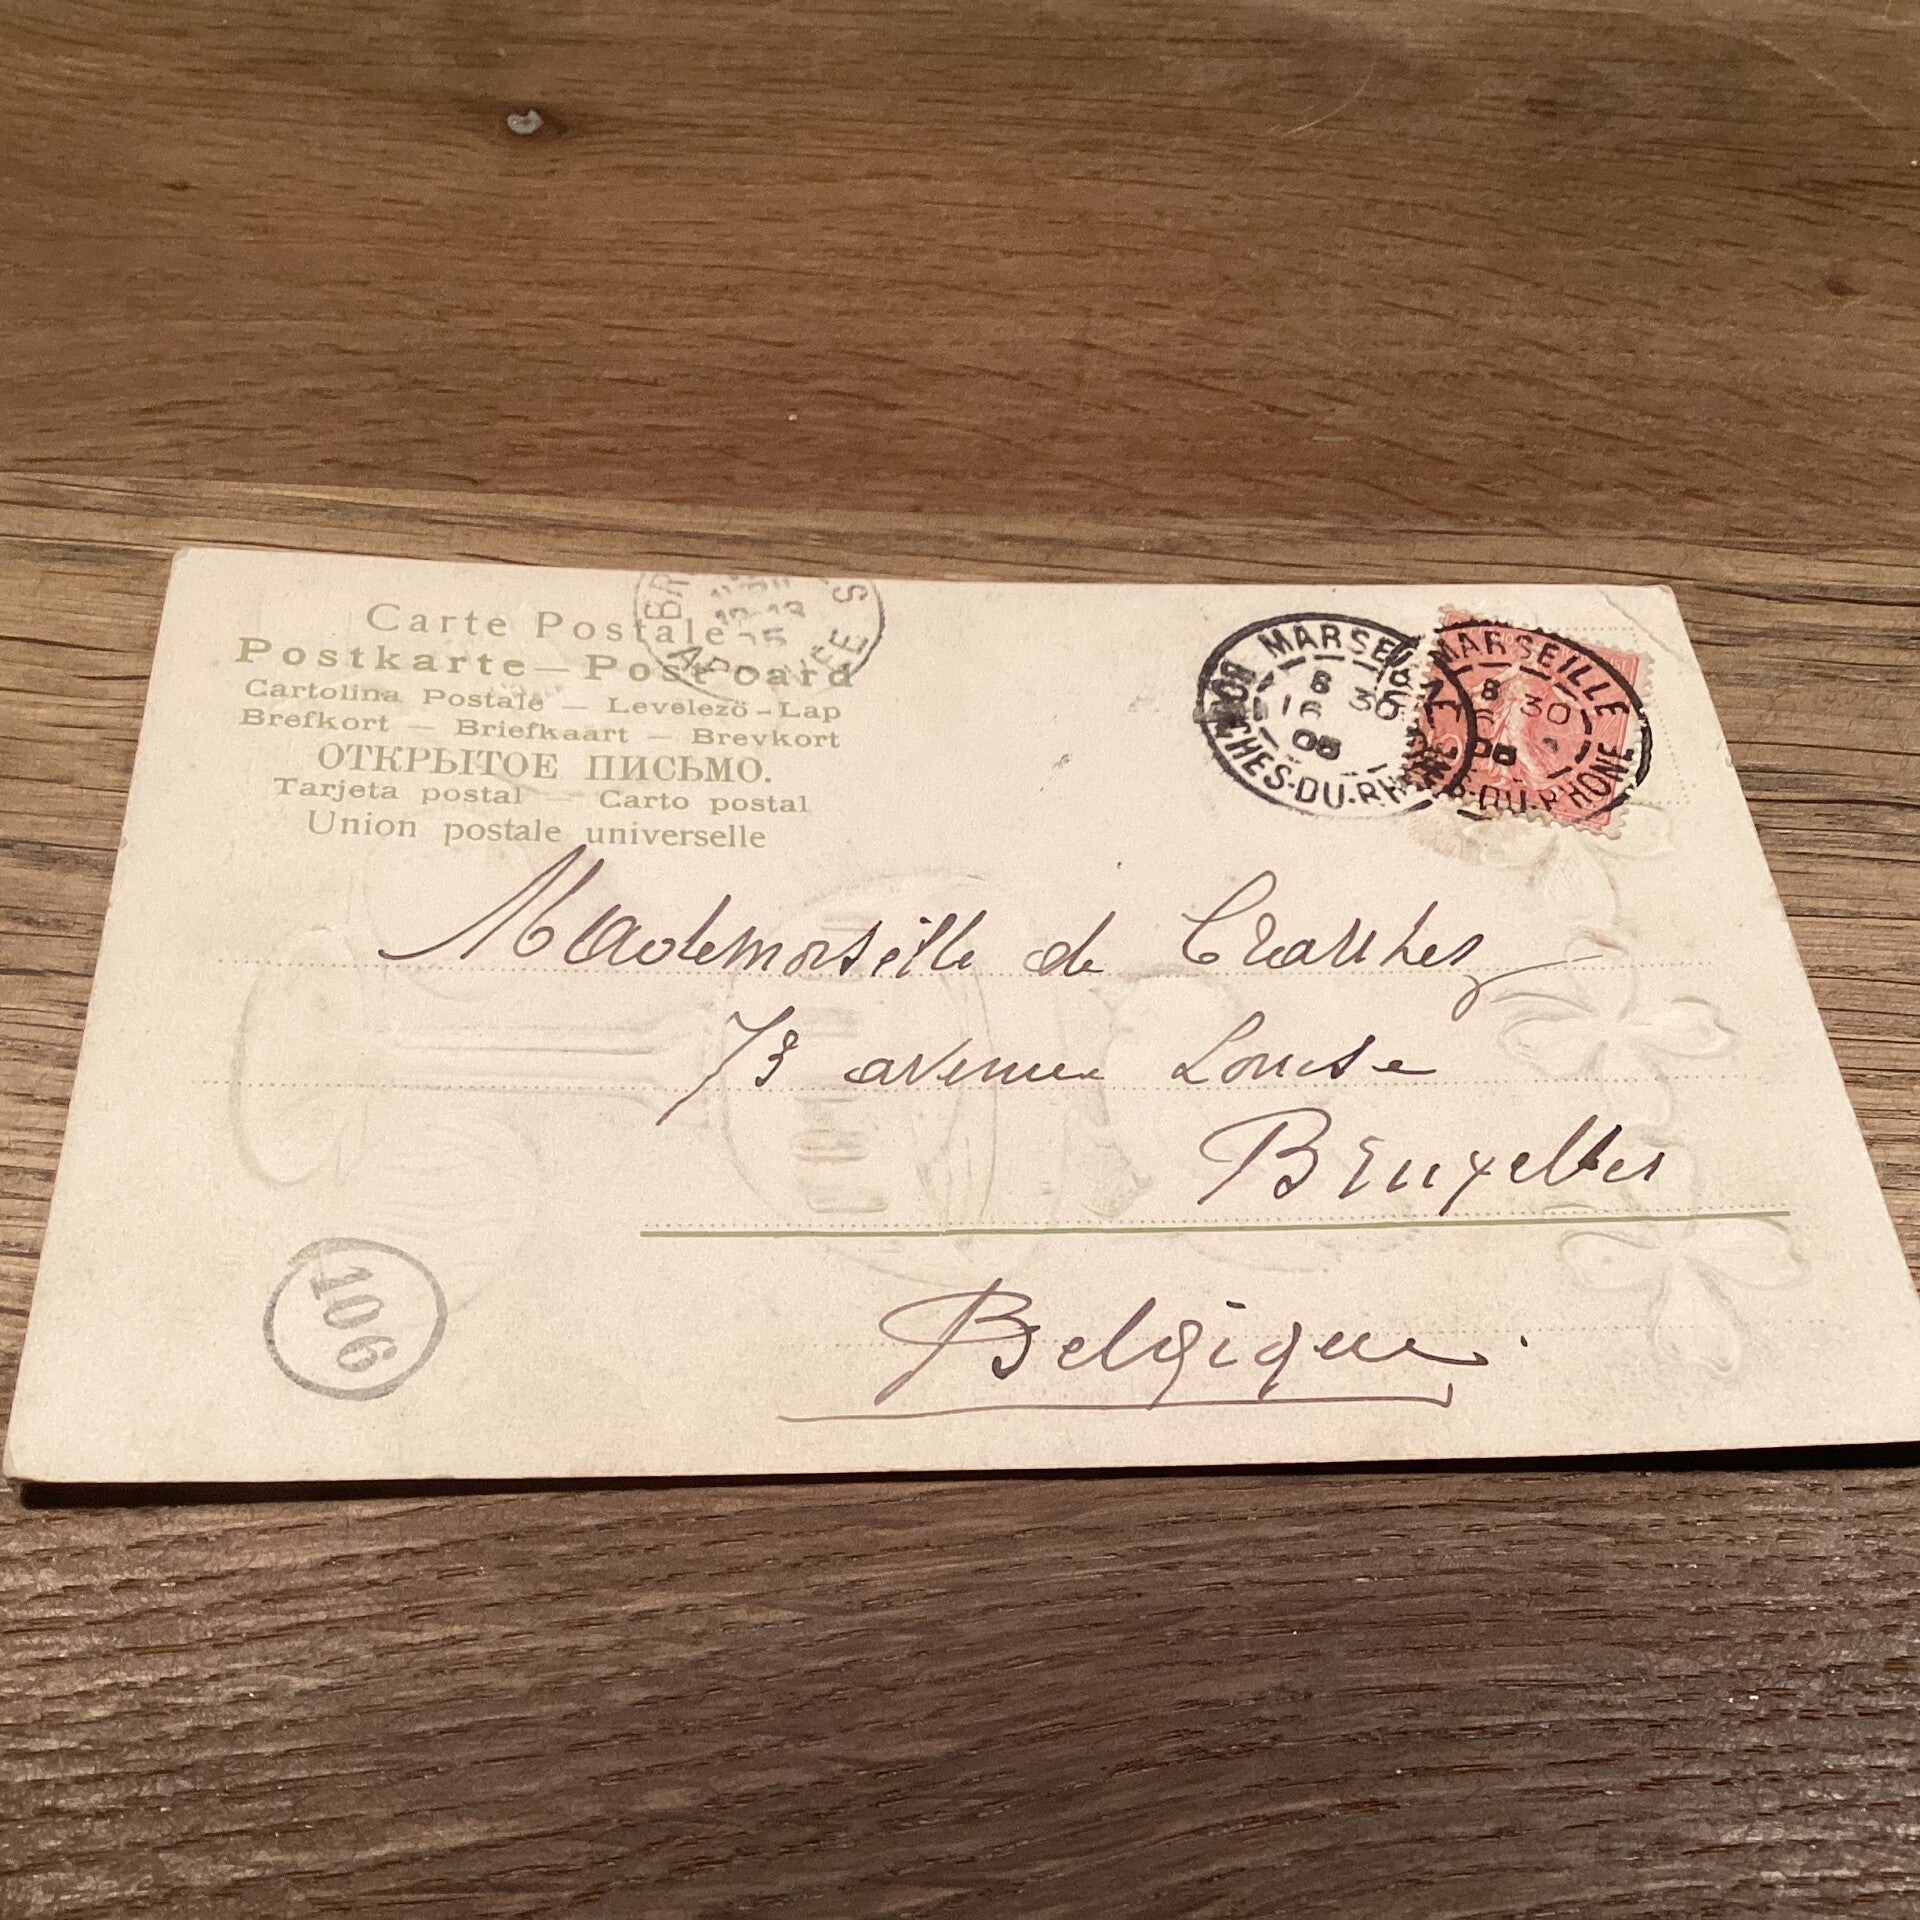 Carte Postale
Postkarte — Post card
Cartolina Postale — Levelezö-Lap
Brefkort — Briefkaart — Brevkort
ОТКРЫТОЕ ПИСЬМО.
Tarjeta postal — Carto postal
Union postale universelle
MARSEILLE
8 30
BOUCHES-DU-RHONE
MARSEILLE
8 30
Mademoiselle de
73 avenue Louise
Bruxelles
Belgique.
106